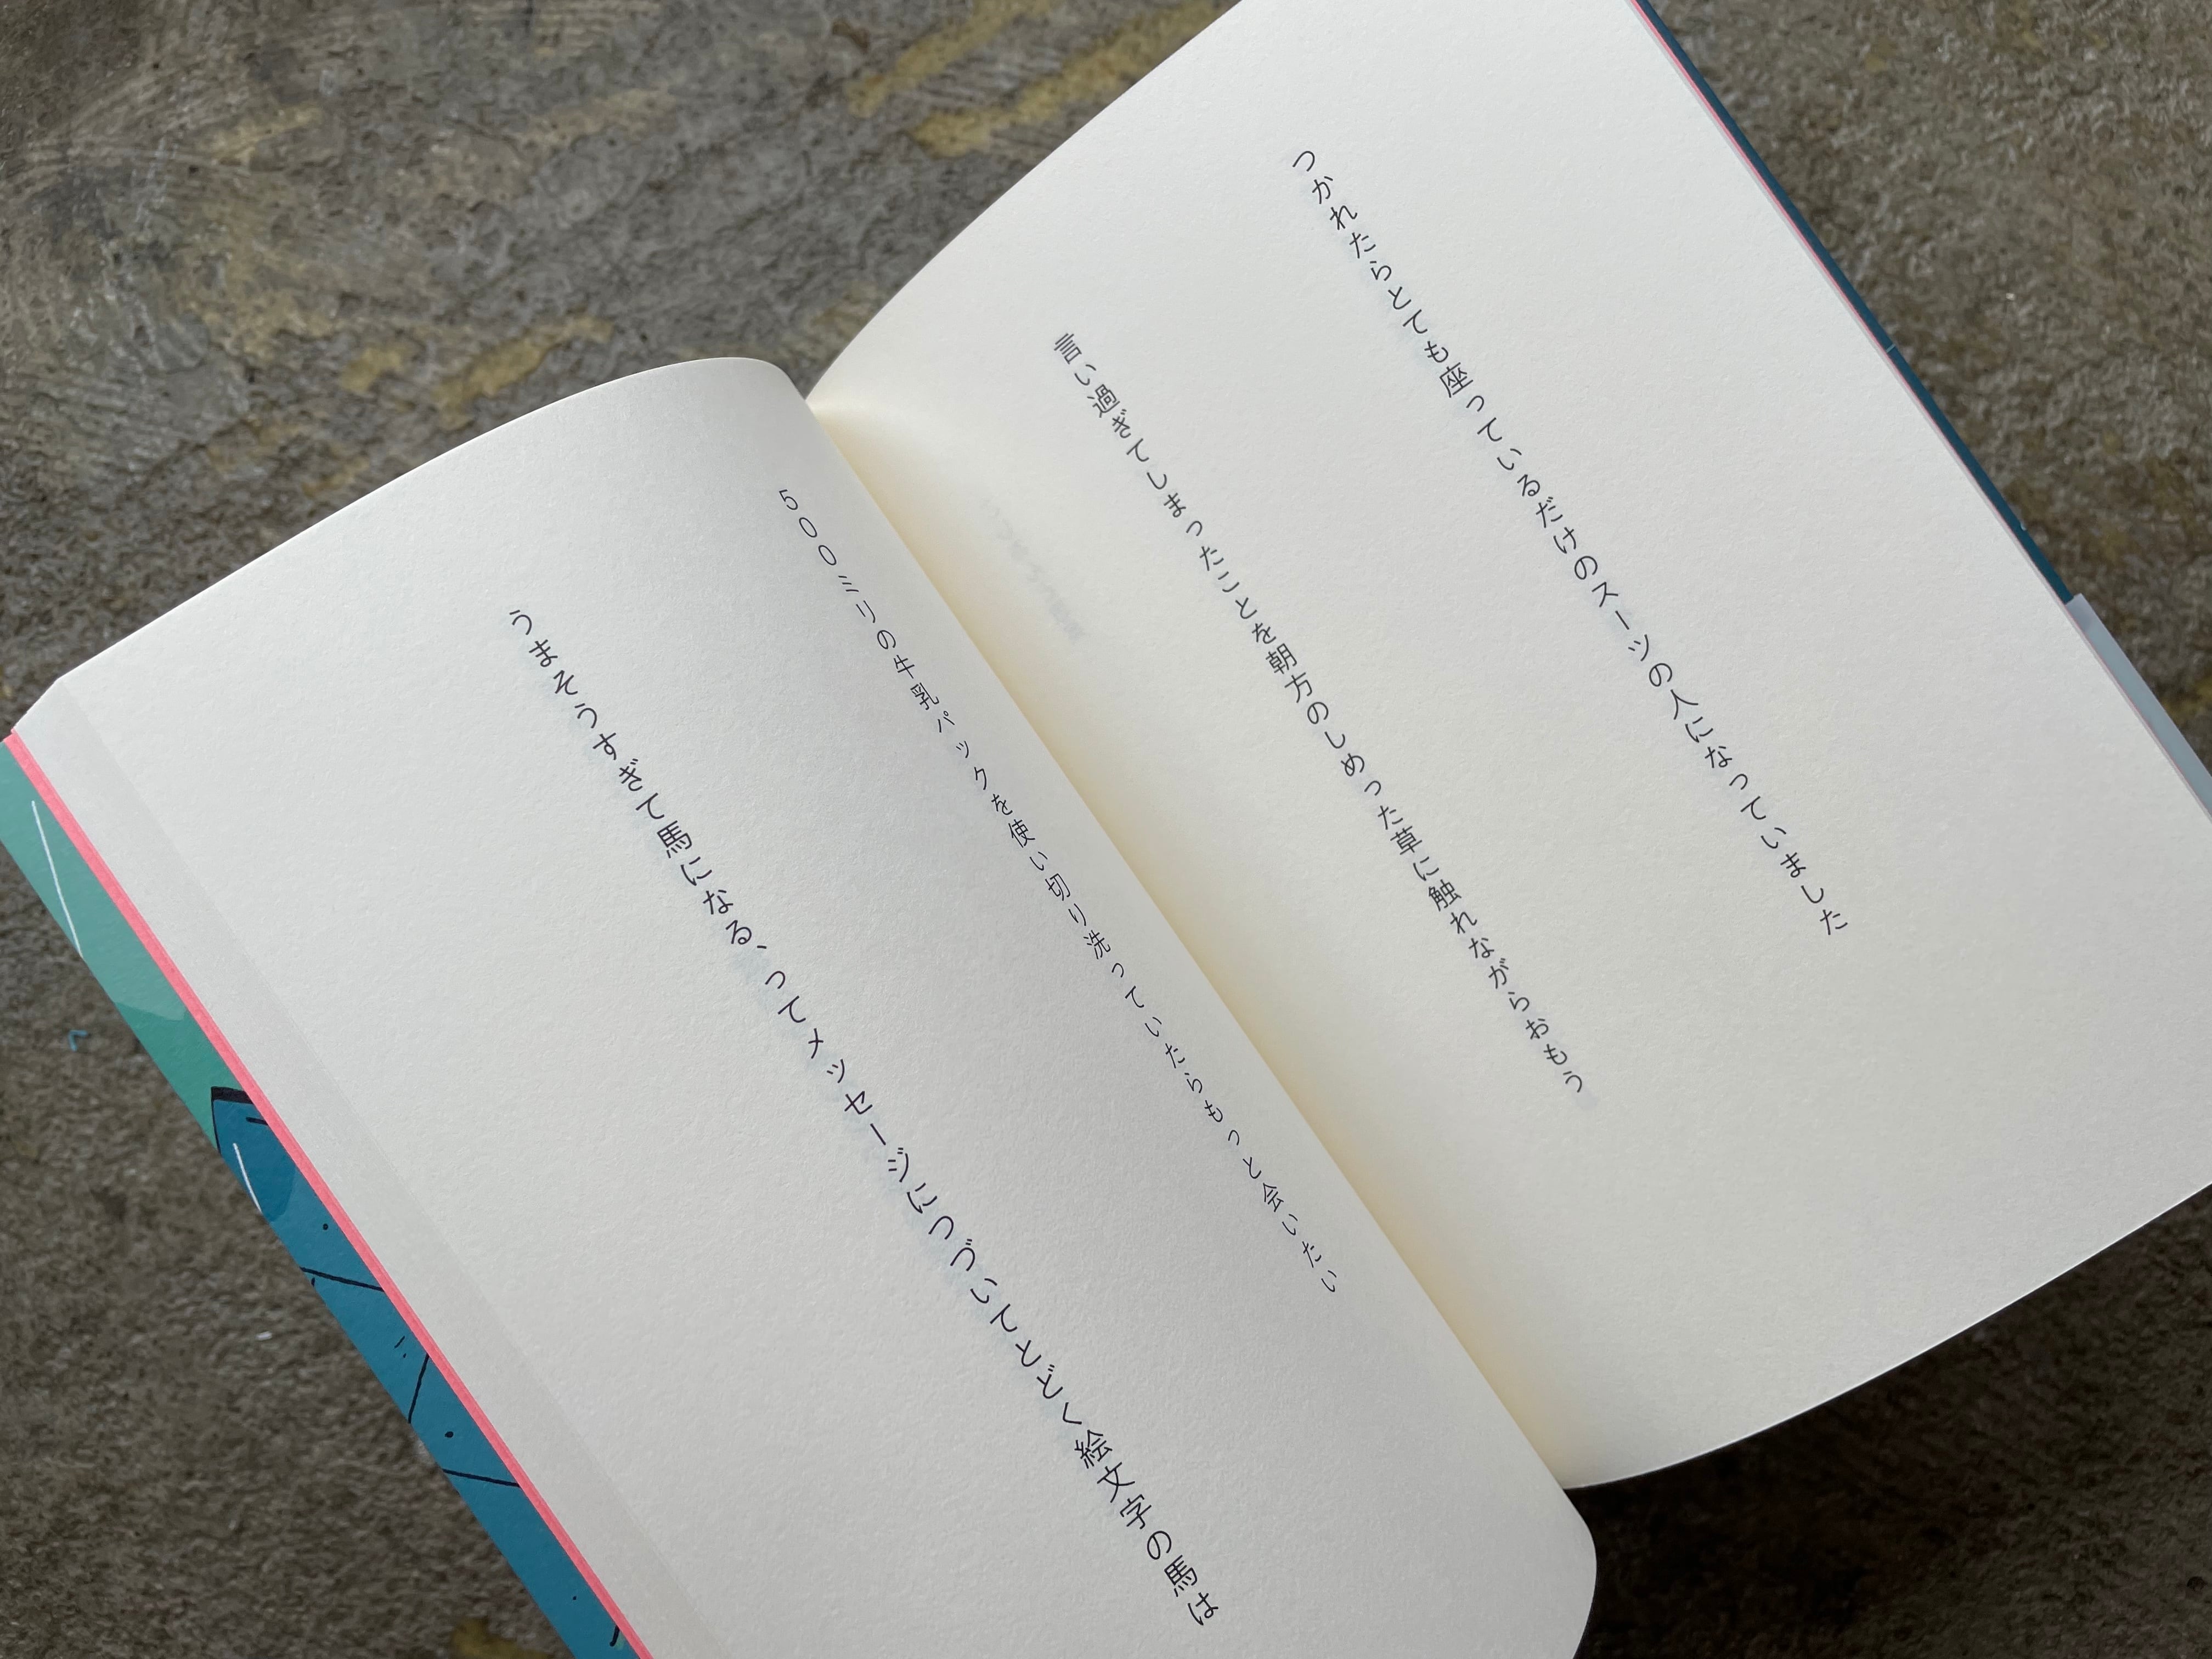 つかれたらとても座っているだけのスーツの人になっていました
言い過ぎてしまったことを朝方のしめった草に触れながらおもう
500ミリの牛乳パックを使い切り洗っていたらもっと会いたい
うまそうすぎて馬になる、ってメッセージにつづいてとどく絵文字の馬は